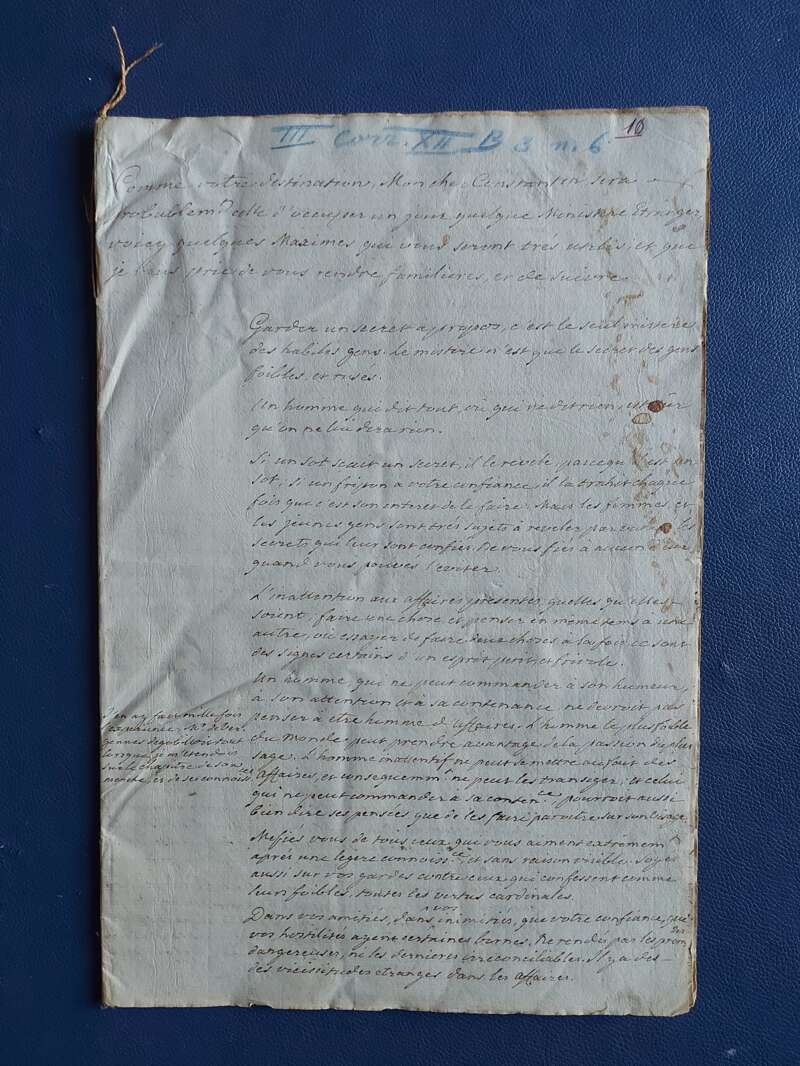 III Corr. XII B 3 n. 6 10
Comme votre destination, Mon cher Constantin sera
probablemt. celle d'occuper un jour quelque Ministere Etranger,
voicy quelques Maximes qui vous seront trés utiles, et que
je vous prie de vous rendre familieres, et de suivre.
Garder un secret a propos, c'est le seul mistere
des habiles gens. Le mistere n'est que le secret des gens
foibles, et rusés.
Un homme qui dit tout, où qui ne dit rien, est sur
qu'on ne lui dira rien.
Si un sot scait un secret, il le revele, parcequ'il est un
sot, si un fripon a votre confiance, il la trahit chaque
fois que c'est son interet de le faire. Mais les femmes, et
les jeunes gens sont trés sujets à reveler par les
secrets qui leur sont confiés. Ne vous fiés à aucun d'eux
quand vous pouves l'eviter.
L'inattention aux affaires presentes, quelles qu'elles
soient, faire une chose et penser en même tems à une
autre, où essayer de faire deux choses à la fois, ce sont
des signes certains d'un esprit petit, et frivole.
Un homme, qui ne peut commander à son humeur,
à son attention et à sa contenance ne devroit pas
penser à etre homme d'affaires. L'homme le plus foible
du Monde peut prendre avantage de la passion du plus
sage. L'homme inattentif ne peut se mettre au fait des
affaires, et consequemmt. ne peut les transiger, et celui
qui ne peut commander à sa contence. pourroit aussi
bien dire ses pensées que de les faire paroitre sur son visage.
J'en ay fait mille fois
l'experience. Mr. de Ver
gennes deguisoit tout
lorsque je m'etendois
sur le chapitre de sa
marche, et de ses connoisces
Mefiés vous de tous ceux, qui vous aiment extrememt.
aprés une legere connoisce. et sans raison visible. Soyés
aussi sur vos gardes contre ceux, qui confessent comme
leurs foibles, toutes les vertus cardinales.
Dans vos amitiés, dans vos inimitiés, que votre confiance, que
vos hostilités ayent certaines bornes. Ne rendés pas les prem
ieres
dangereuses, ni les dernieres irreconciliables. Il y a des
des vicissitudes etranges dans les affaires.